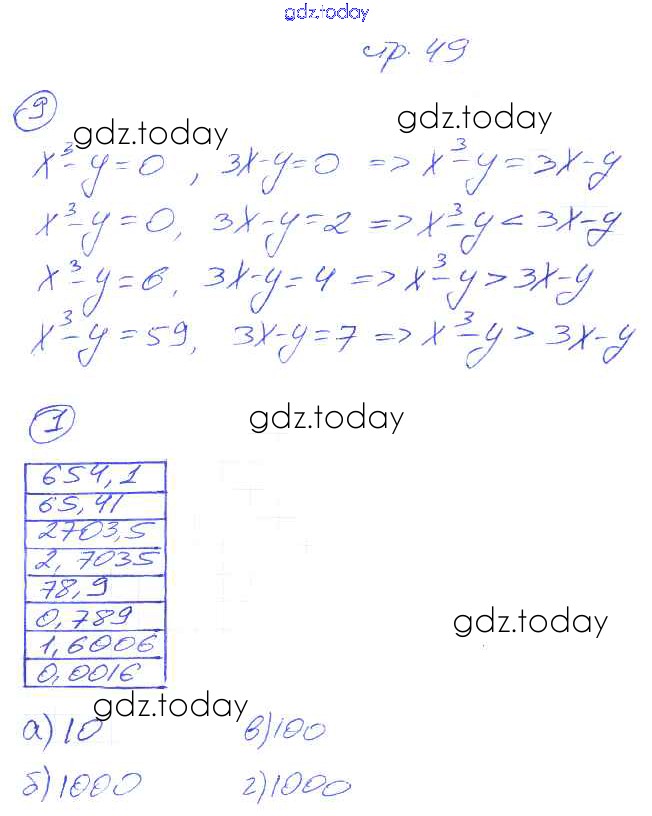 gdz.today
стр. 49
9
gdz.today
gdz.today
x³-y=0, 3x-y=0 => x³-y=3x-y
x³-y=0, 3x-y=2 => x³-y<3x-y
x³-y=6, 3x-y=4 => x³-y>3x-y
x³-y=59, 3x-y=7 => x³-y>3x-y
1
gdz.today
654,1
65,41
2703,5
2,7035
78,9
0,789
gdz.today
1,6006
0,0016
gdz.today
а) 10 в) 100
б) 1000 г) 1000